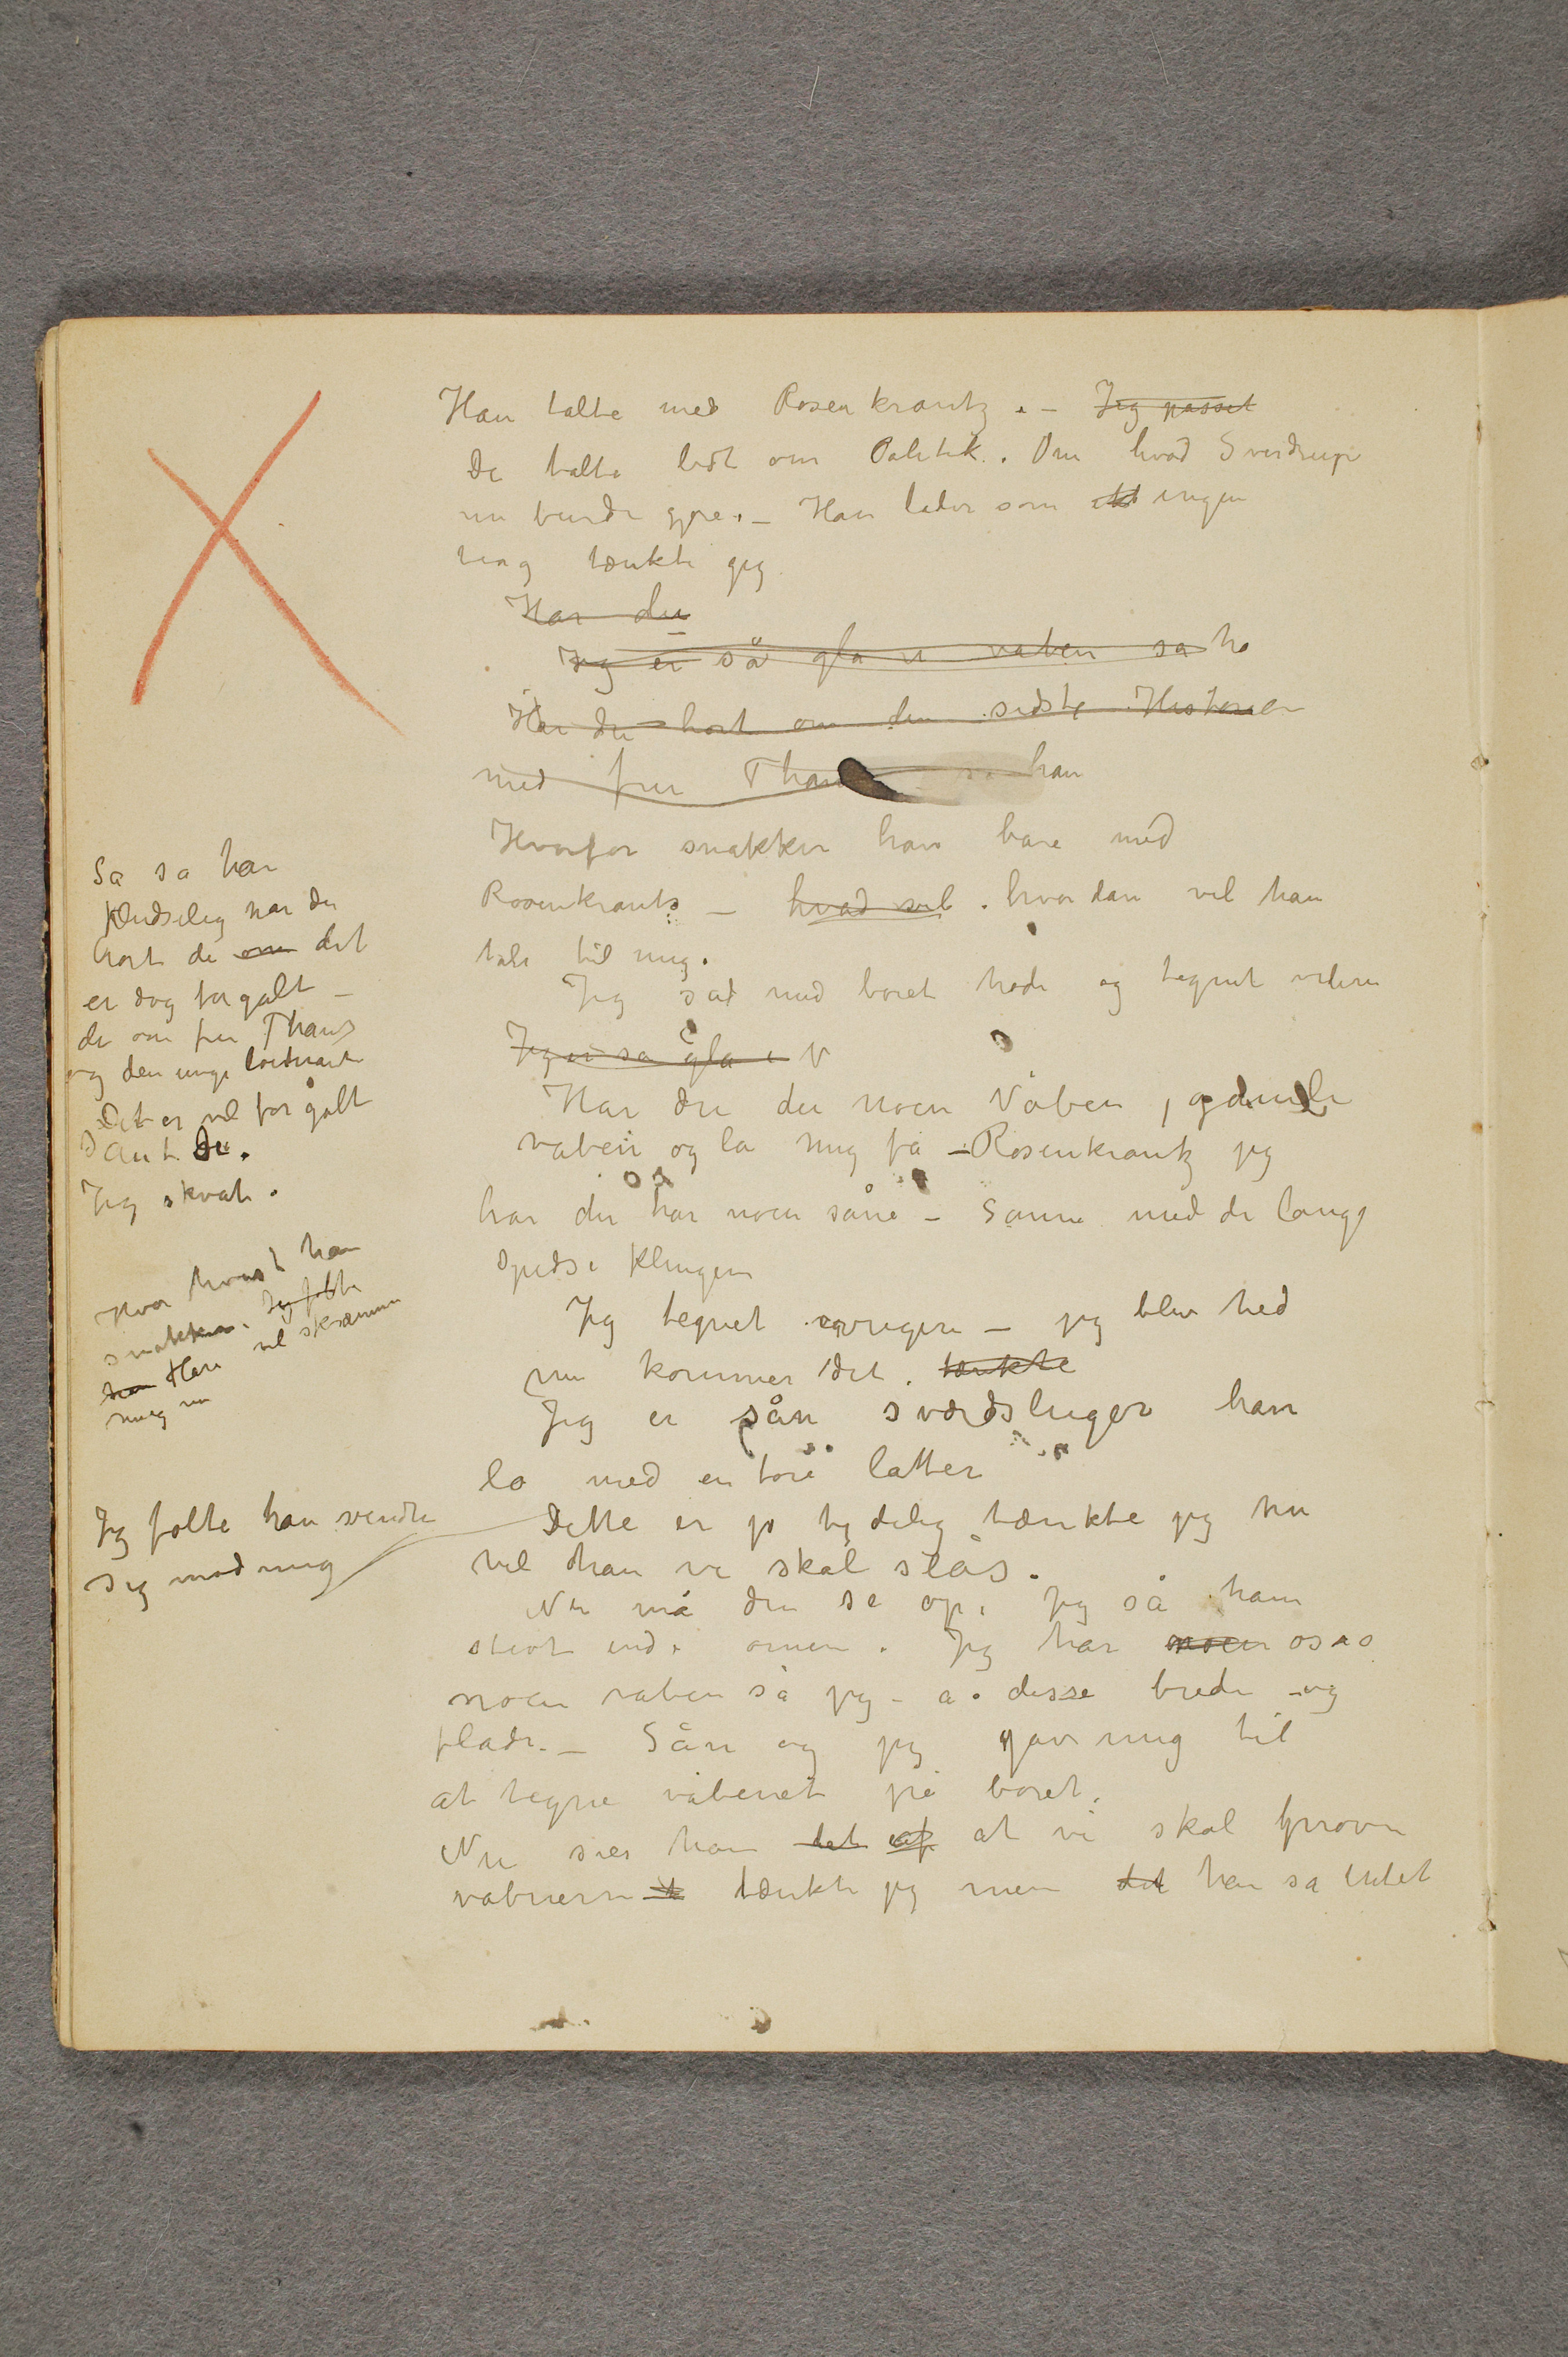 Han talte med Rosenkrantz. – Jeg passet
De talte lidt om Politik. Om hvad Sverdrup
nu burde gjøre. – Han lader som ingen
ting tænkte jeg
Har du
Jeg er så gla i våben sa ha
Har du hørt om den sidste Historien
med fru Thau sa han
Hvorfor snakker han bare med
Rosenkrantz – hvad vil. hvordan vil han
tale til mig.
Jeg sad med bøiet hode og tegnet videre
Jeg er så gla i v
Har du du noen Våben, gamle
våben og la mig få – Rosenkrantz jeg
har du har noen såne – Sånne med de lange
spidse klinger
Jeg tegnet ivrigere – jeg blev hed
nu kommer det. tænkte
Jeg er sån sværdsluger han
lo med en tør latter
Dette er jo tydelig tænkte jeg nu
vil han vi skal slås.
Nu må du se op. jeg så ham
stivt ind i øinene. Jeg har noen også
noen våben sa jeg – a. disse brede – og
flade. – Sån og jeg gav mig til
at tegne våbenet på boret.
Nu sier han det af at vi skal prøve
våbnerne t tænkte jeg men det han sa intet
Sa sa han
pludselig har du
hørt de om det
er dog for galt –
de om fru Thau
og den unge løitnant
Det er vel for galt
Sant du.
Jeg skvat.
Hvor hvast han
snakker. Jeg følte
han Han vil skræmme
mig nu
Jeg følte han vendte
sig mod mig